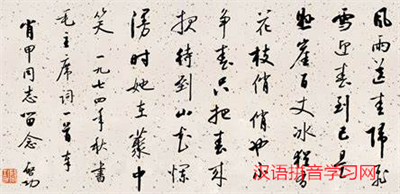 風雨送春歸飛
雪迎春到已是
懸崖百丈冰猶有
花枝俏俏也不
爭春只把春來
報待到山花爛
漫時她在叢中
笑 一九七四年秋書
毛主席詞一首奉
肖甲同志留念 启功
汉语拼音学习网